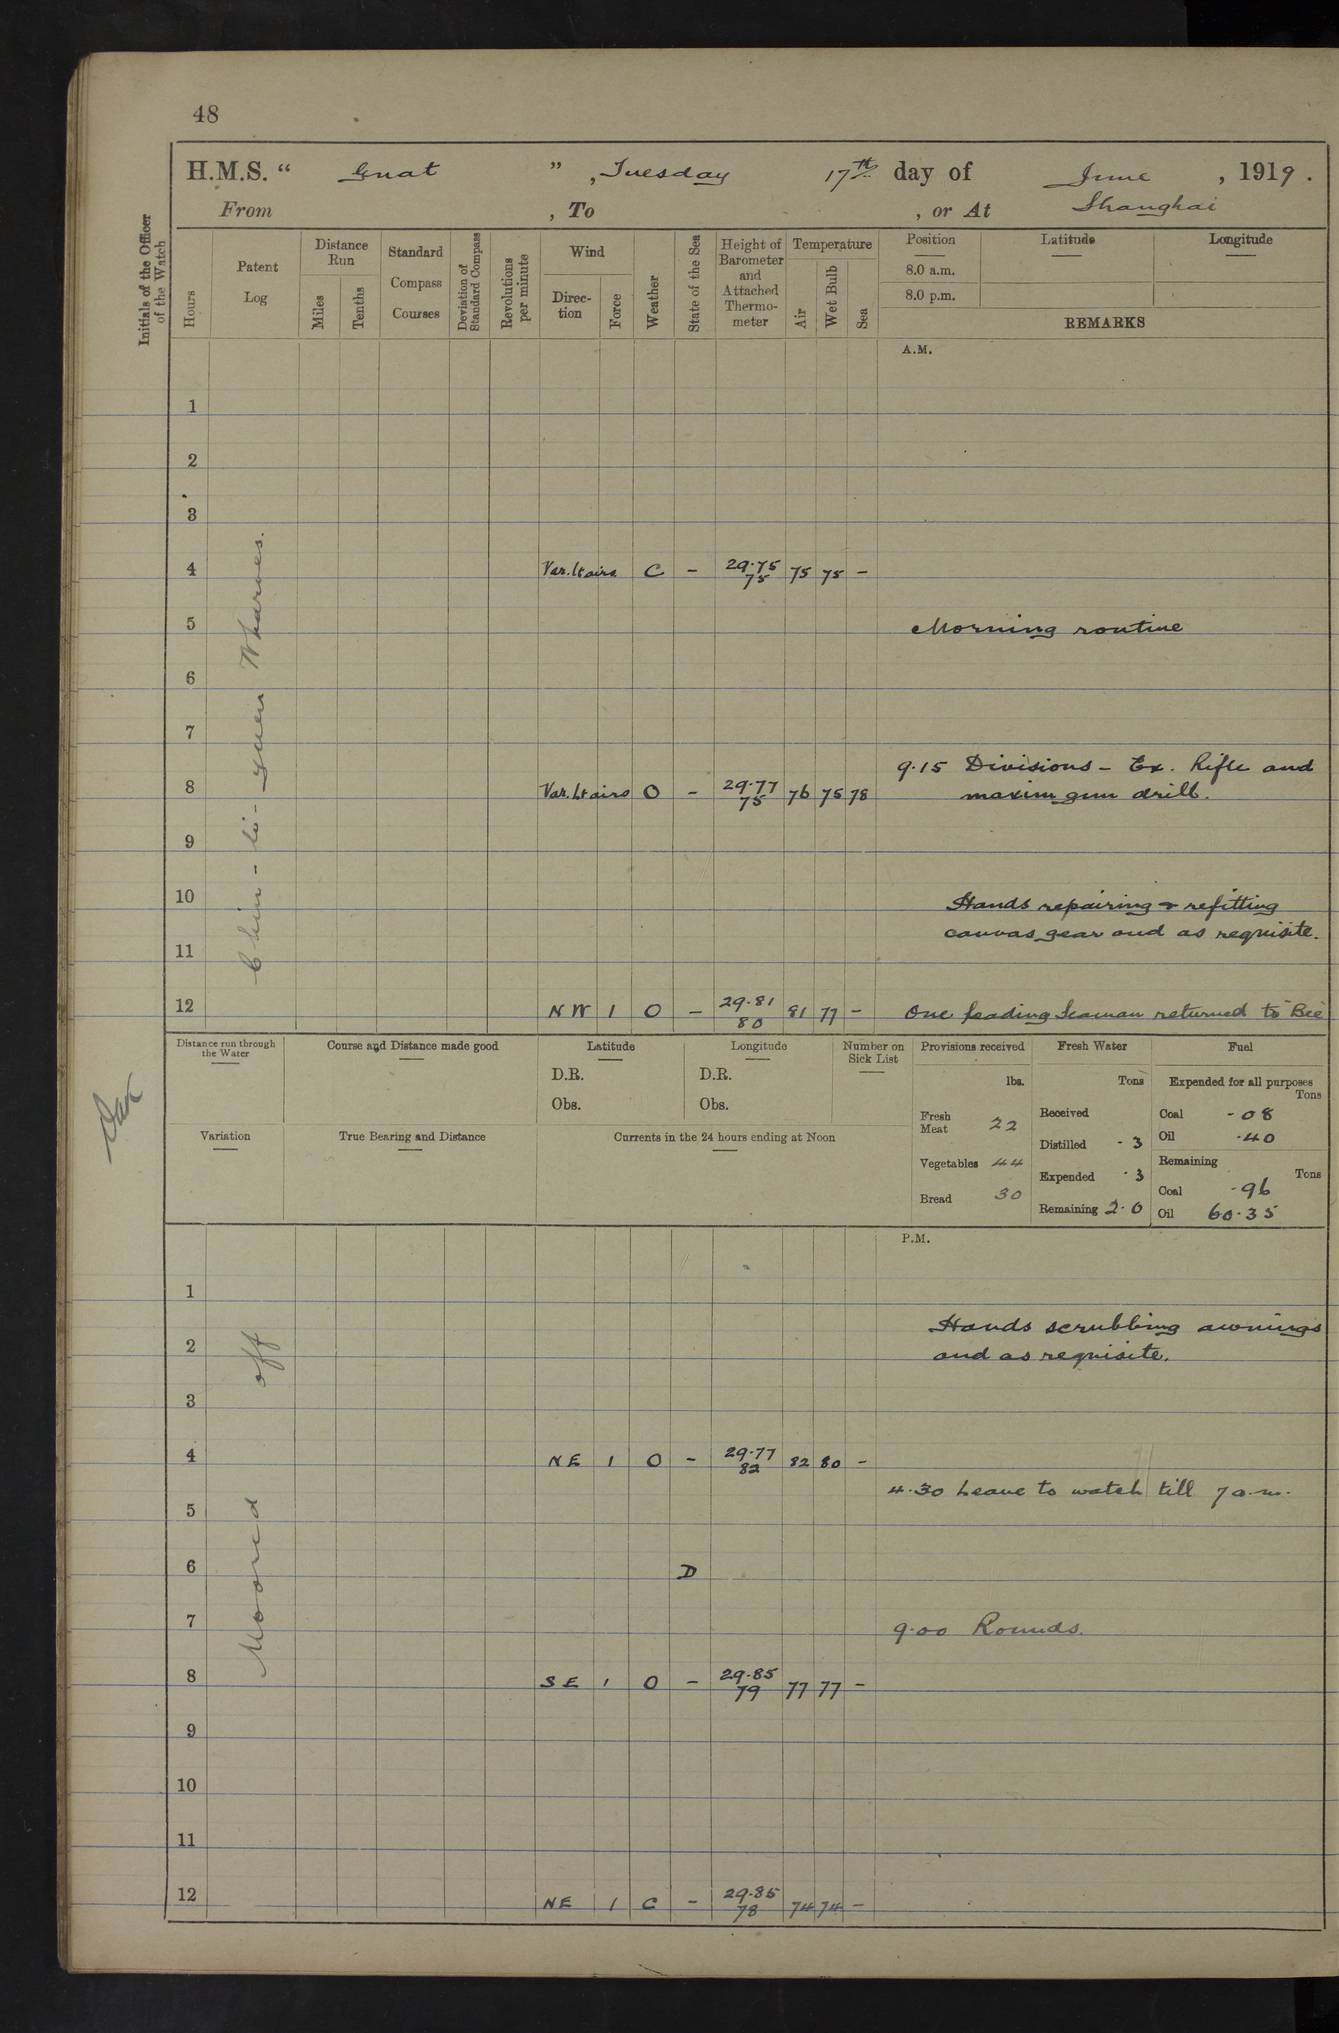 48
H.M.S. “ Gnat ” , Tuesday 17th day of June , 1919 .
From , To , or At Shanghai
Initials of the Officer of the Watch
Hours
Patent Log
Distance Run
Miles
Tenths
Standard Compass Courses
Deviation of Standard Compass
Revolutions per minute
Wind
Direction
Force
Weather
State of the Sea
Height of Barometer and Attached Thermometer
Temperature
Air
Wet Bulb
Sea
Position Latitude Longitude
8.0 a.m.
8.0 p.m.
REMARKS
A.M.
1
2
3
4 Var. lt airs C - 29.75 75 75 75 -
5 Morning routine
6
7
9.15 Divisions - Ex. Rifle and
8 Var. Lt airs O - 29.77 75 76 75 78 maxim gun drill.
9
10 Hands repairing & refitting
canvas gear and as requisite.
11
12 NW 1 O - 29.81 80 81 77 - One Leading Seaman returned to "Bee"
Chin - li - yuen Wharves.
Distance run through the Water
Course and Distance made good
Latitude
D.R.
Obs.
Longitude
D.R.
Obs.
Number on Sick List
Variation
True Bearing and Distance
Currents in the 24 hours ending at Noon
Provisions received
lbs.
Fresh Meat 22
Vegetables 44
Bread 30
Fresh Water
Tons
Received
Distilled .3
Expended .3
Remaining 2.0
Fuel
Expended for all purposes
Tons
Coal .08
Oil .40
Remaining
Tons
Coal .96
Oil 60.35
P.M.
1
Hands scrubbing awnings
2 and as requisite.
3
4 NE 1 O - 29.77 82 82 80 -
4.30 Leave to watch till 7 a.m.
5
6 D
7 9.00 Rounds.
8 SE 1 O - 29.85 79 77 77 -
9
10
11
12 NE 1 C - 29.85 78 74 74 -
Moored off